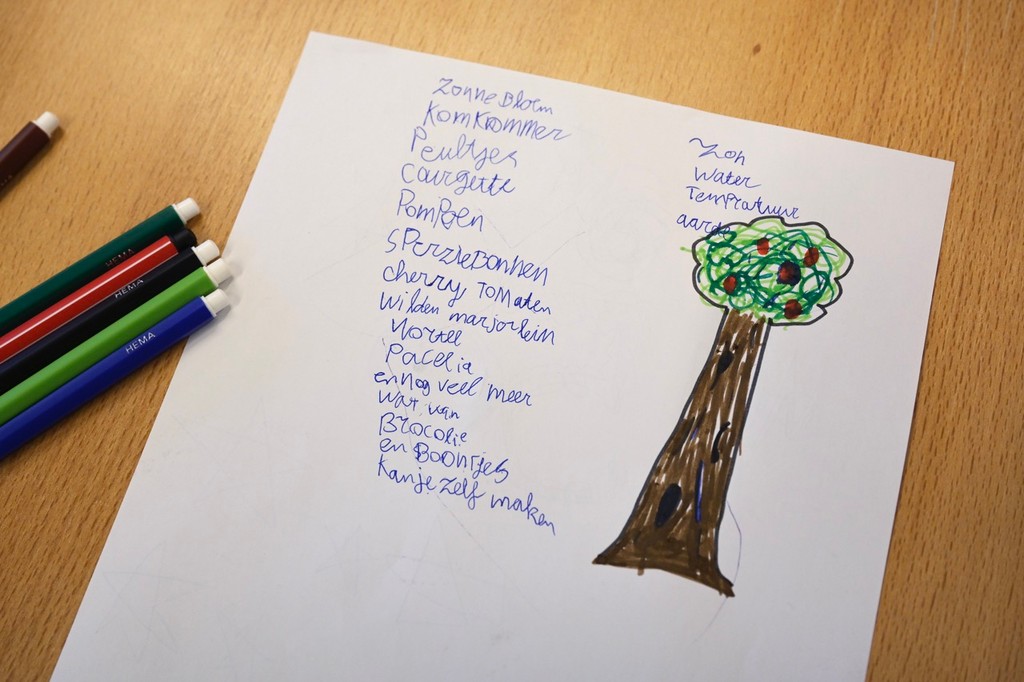 Zonnebloem
Komkrommer
Peultjes
Courgette
Pompoen
sperziebonnen
cherry Tomaten
wilden marjorlein
Wortel
Pacelia
en nog veel meer
wat van
Brocolie
en Boontjes
Kan je zelf maken
Zon
Water
Tempratuur
aarde
HEMA
HEMA
HEMA